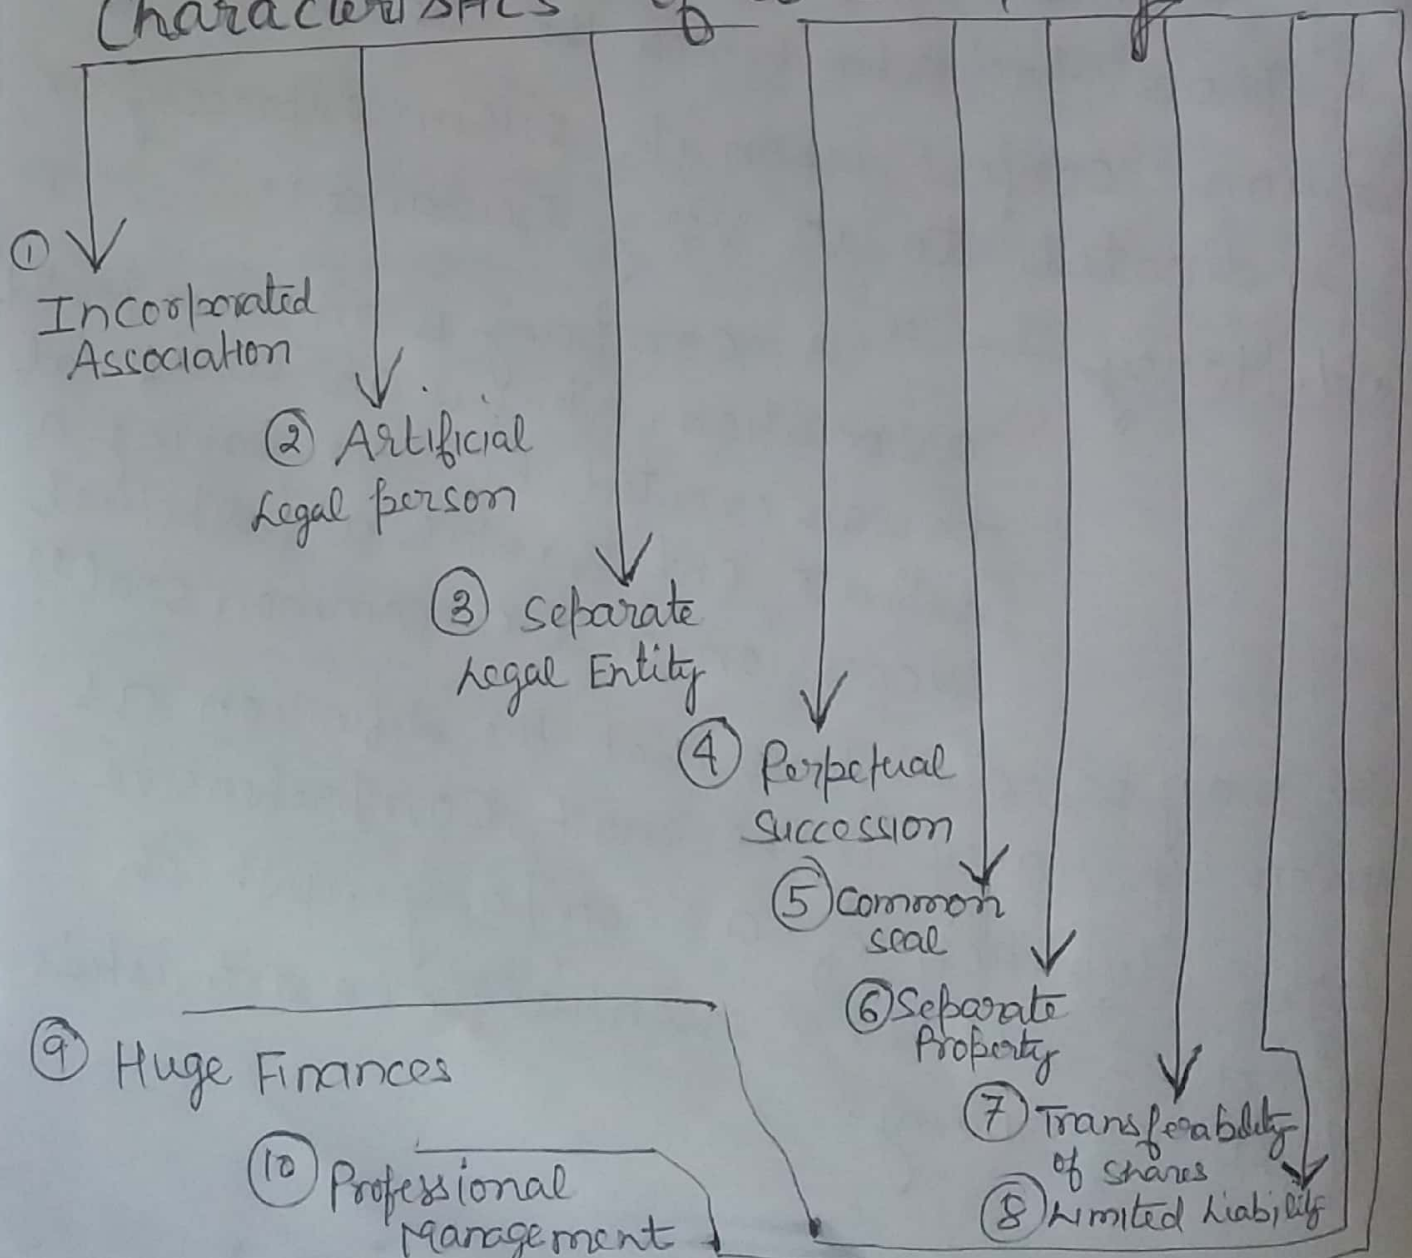 Characteristics of
① Incorporated
Association
② Artificial
Legal person
③ Separate
Legal Entity
④ Perpetual
Succession
⑤ Common
seal
⑥ Separate
Property
⑦ Transferability
of shares
⑧ Limited Liability
⑨ Huge Finances
⑩ Professional
Management